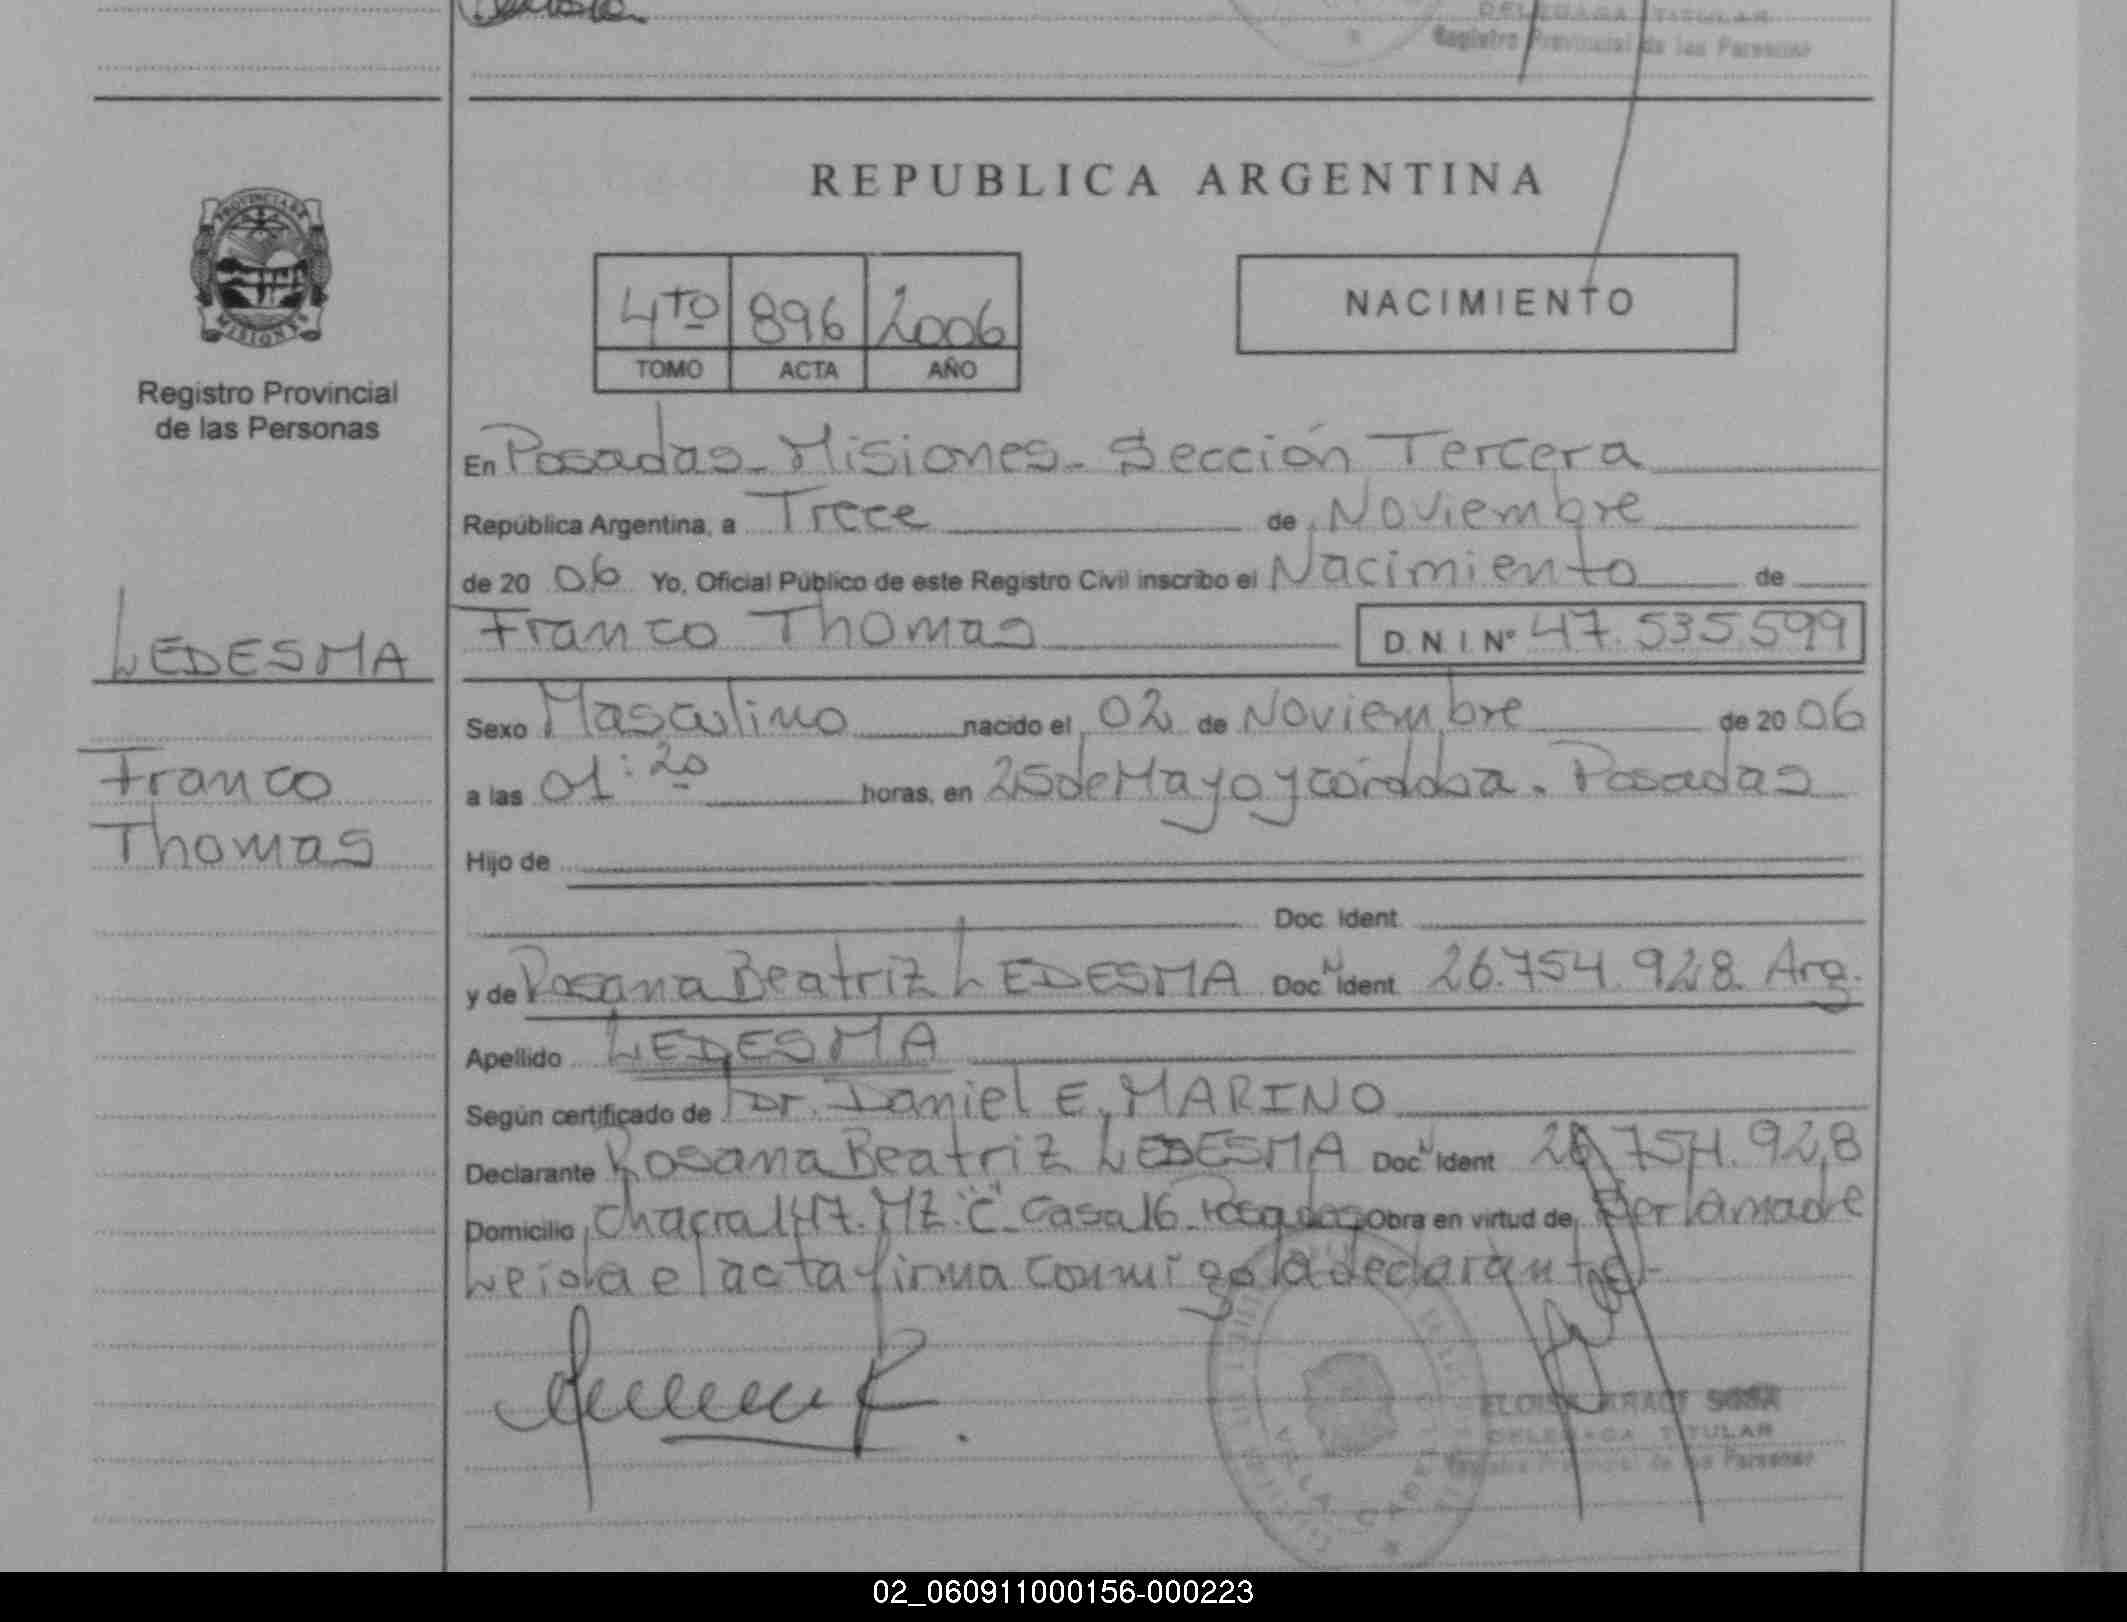 DELEGADA TITULAR
Registro Provincial de las Personas
REPUBLICA ARGENTINA
PROVINCIA DE
MISIONES
Registro Provincial
de las Personas
4to 896 2006
TOMO ACTA AÑO
NACIMIENTO
En Posadas - Misiones - Sección Tercera
República Argentina, a Trece de Noviembre
de 20 06 Yo, Oficial Público de este Registro Civil inscribo el Nacimiento de
LEDESMA
Franco Thomas D.N.I. Nº 47.535.599
Sexo Masculino nacido el 02 de Noviembre de 20 06
Franco
Thomas
a las 01:20 horas, en 25 de Mayo y córdoba. Posadas
Hijo de
Doc. Ident.
y de Rosana Beatriz LEDESMA Doc. N Ident. 26.754.928. Arg.
Apellido LEDESMA
Según certificado de Dr. Daniel E. MARINO
Declarante Rosana Beatriz LEDESMA Doc. N Ident 26.754.928
Domicilio Chacra 147. MZ. "C". Casa 16. Posadas Obra en virtud de Ser la madre
Leída el acta firma conmigo la declarante-
SOSA
DELEGADA TITULAR
Registro Provincial de las Personas
02_060911000156-000223